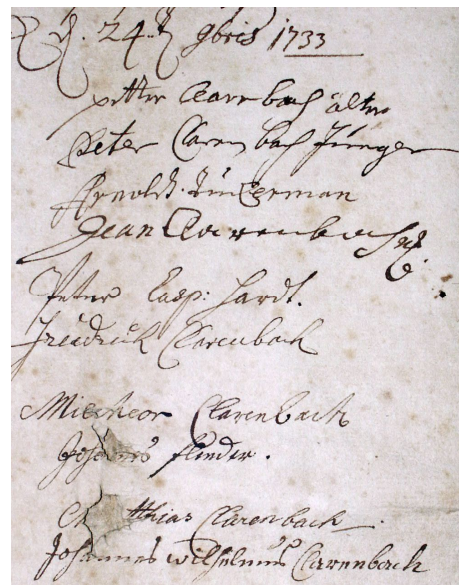 d. 24.t 9bris 1733
petter Clarenbach älter
Peter Claren bach Jünger
Arnoldt
Jean Clarenbach
Peter Casp: Hardt.
Friedrich Clarenbach
Melcheor Clarenbach
Johannes flender.
thias Clarenbach
Johannes wilhelmus Clarenbach